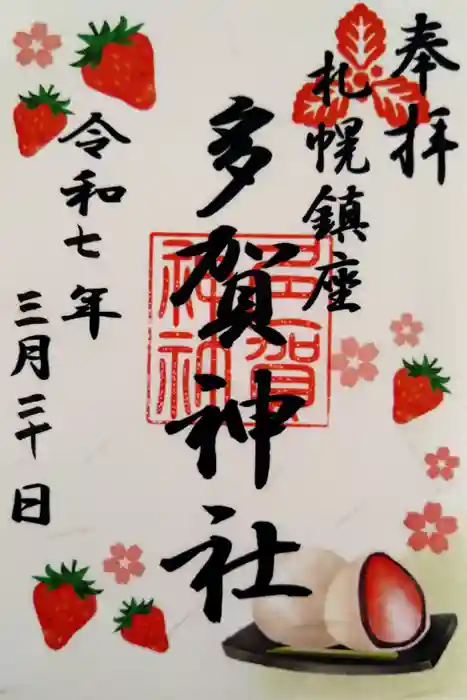 奉拝
札幌鎮座
多賀神社
令和七年
三月二十日